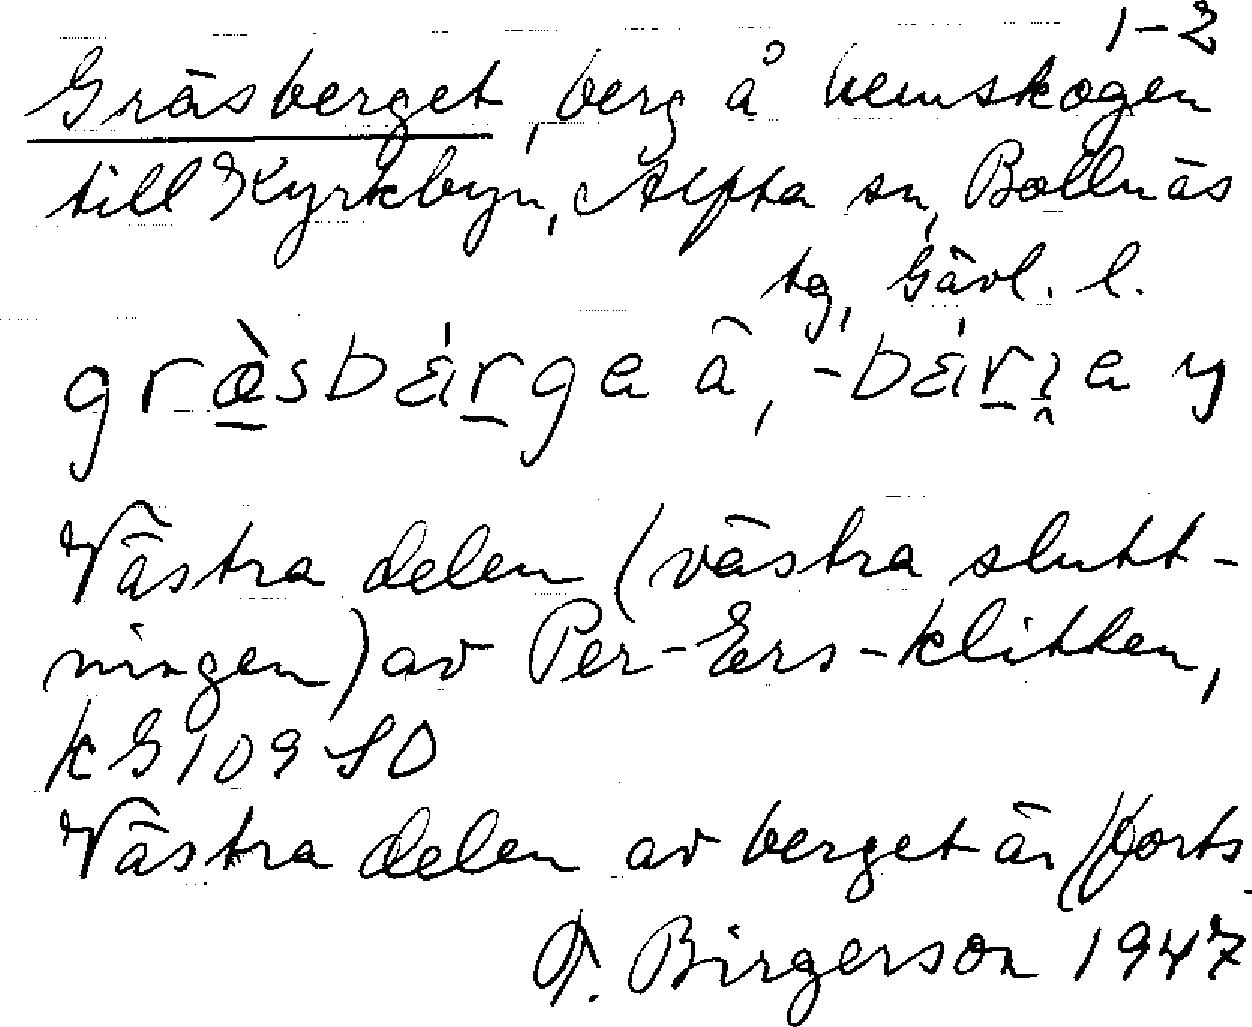 1-2
Gräsberget, berg å hemskogen
till Kyrkbyn, Alfta sn, Bollnäs
tg, Gävl. l.
Västra delen (västra slutt-
ningen) av Per-Ers-klitten,
kG 109 SO
Västra delen av berget är (forts.
T. Birgerson 1947